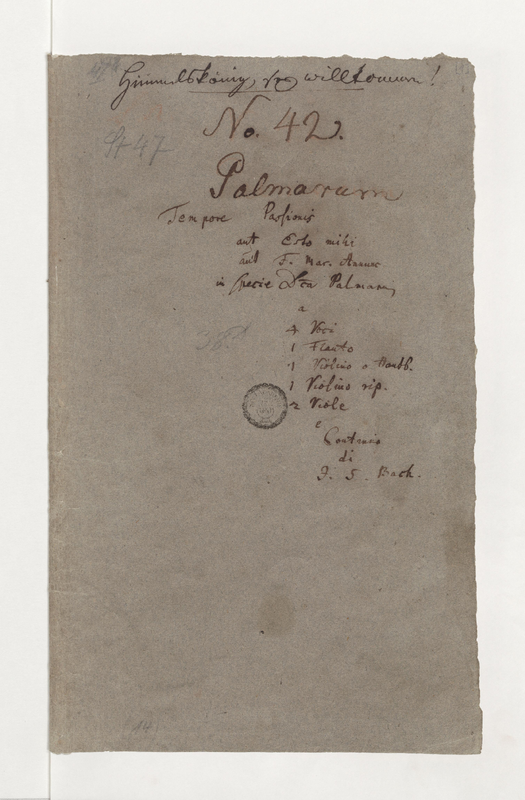 Himmelskönig, sey willkommen!
No. 42.
St 47
Palmarum
Tempore Passionis
aut Esto mihi
aut F. Mar. Annunc
in specie Dca Palmarum
a
4 Voci
1 Flauto
1 Violino o Hautb.
1 Violino rip.
2 Viole
e
Continuo
di
J. S. Bach.
(14)